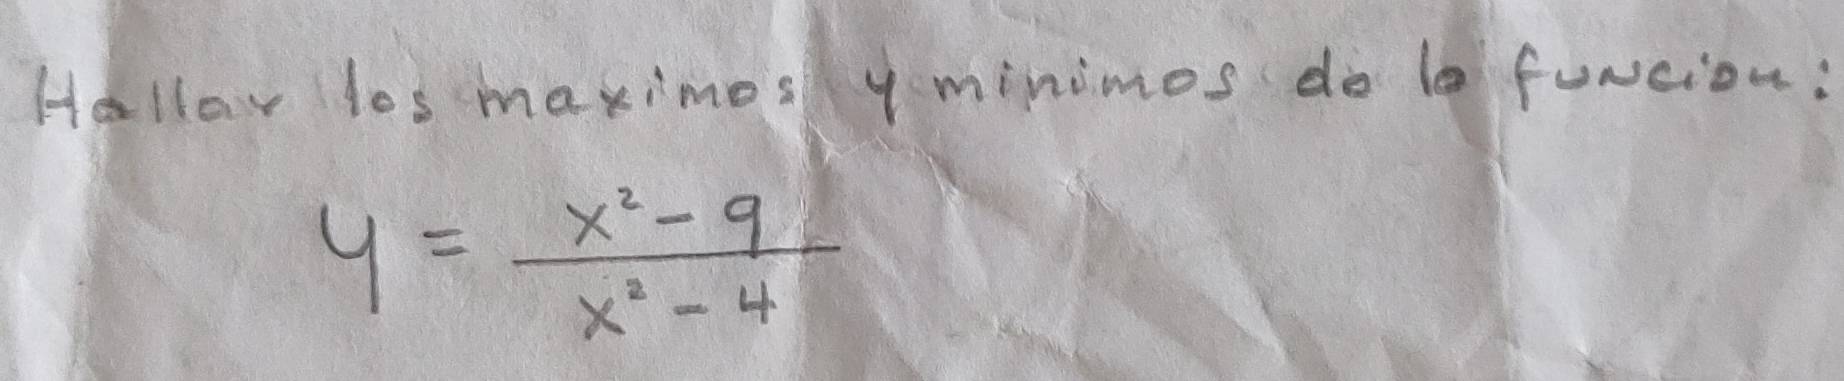 Hallar los maximos y minimos de la funcion:
y = (x² - 9) / (x² - 4)